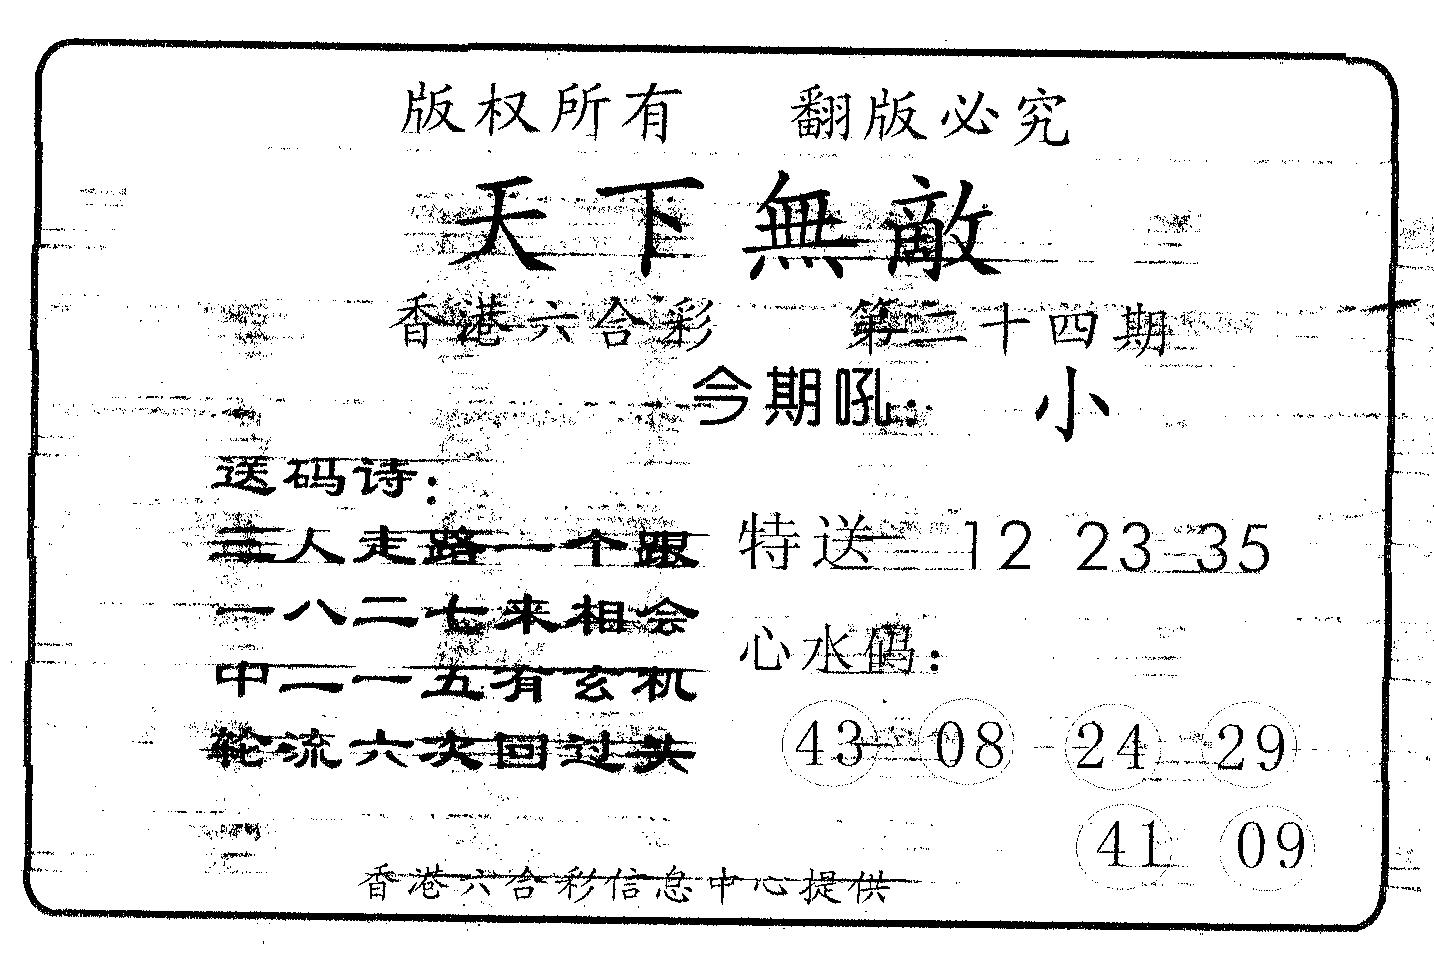 版权所有 翻版必究
天下無敵
香港六合彩 第二十四期
今期吼： 小
送码诗：
三人走路一个跟
一八二七来相会
中二一五有玄机
轮流六次回过头
特送 12 23 35
心水码：
43 08 24 29
41 09
香港六合彩信息中心提供